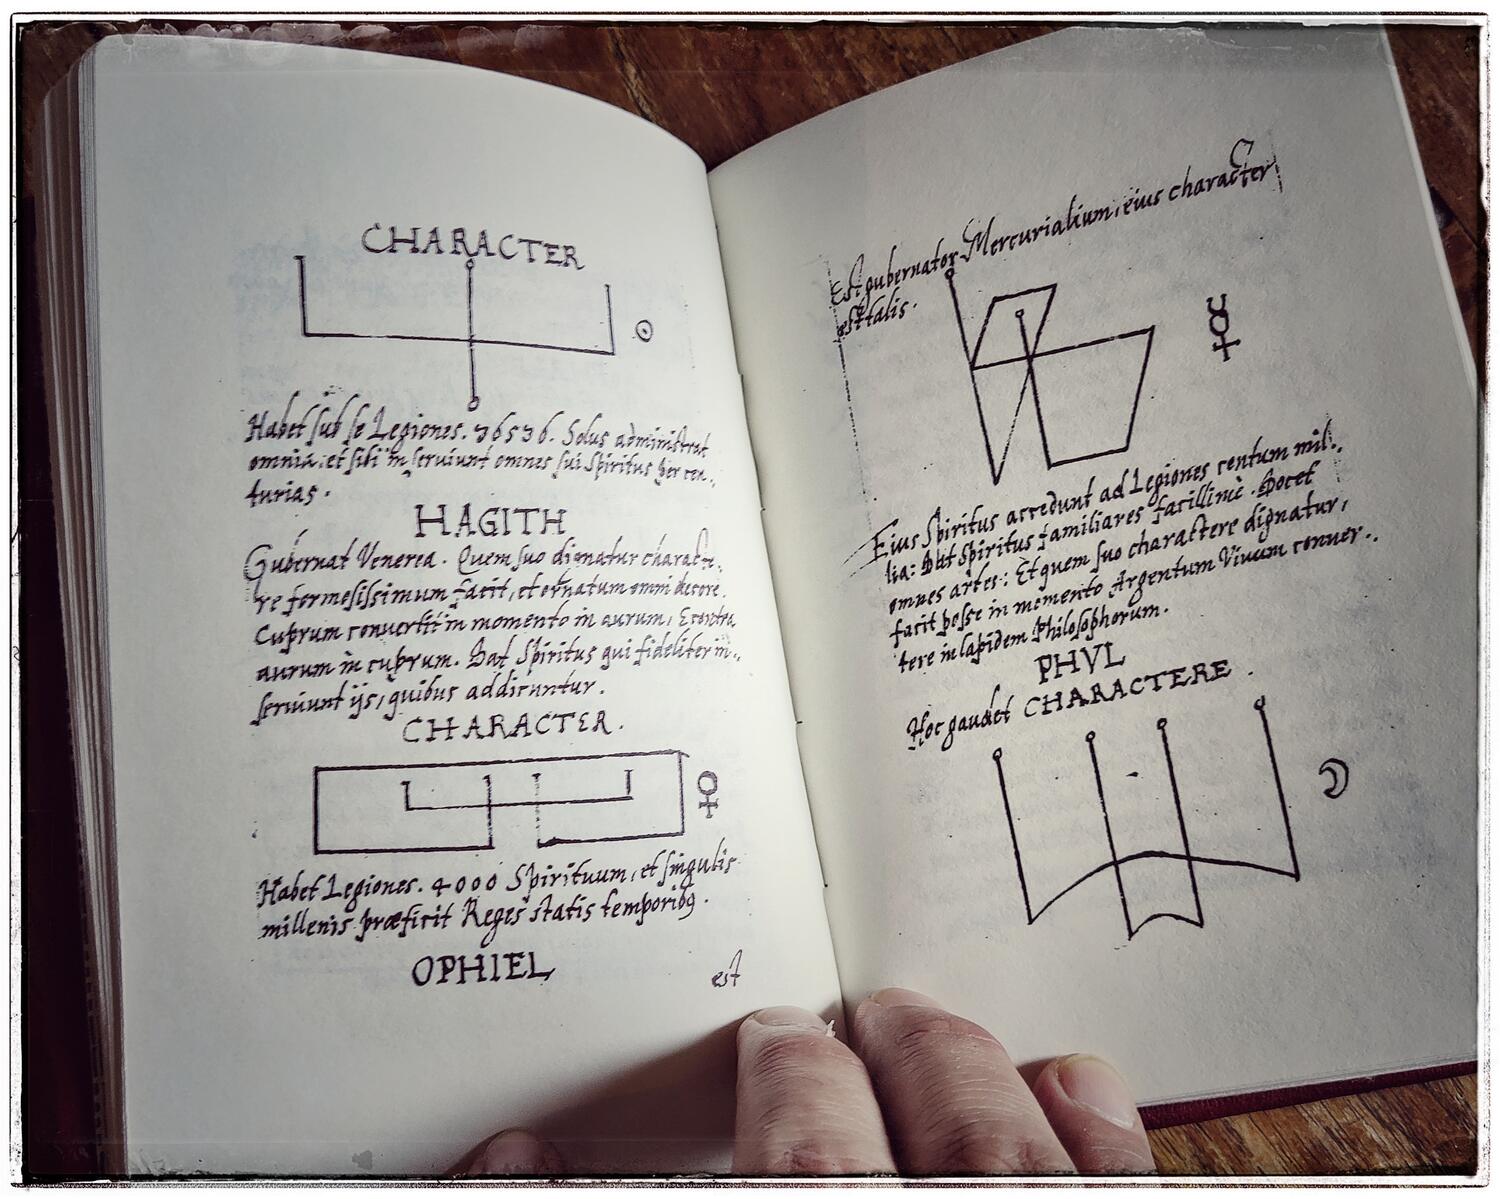 CHARACTER
Habet sub se Legiones. 36536. Solus administrat
omnia: et sibi in serviunt omnes sui Spiritus per cen..
turias.
HAGITH
Gubernat Venerea. Quem suo dignatur charact..
re formosissimum facit, et ornatum omni decore.
Cuprum convertit in momento in aurum, Econtra
aurum in cuprum. Dat Spiritus qui fideliter in..
serviunt ijs, quibus addicuntur.
CHARACTER.
Habet Legiones. 4000 Spirituum, et singulis
millenis præficit Reges statis temporibꝯ.
OPHIEL
est
Est gubernator Mercurialium, eius character
est talis.
Eius Spiritus accedunt ad Legiones centum mil..
lia: Dat Spiritus familiares facillimè. Docet
omnes artes: Et quem suo charactere dignatur,
facit posse in momento Argentum Vivum conver..
tere in lapidem Philosophorum.
PHVL
Hoc gaudet CHARACTERE.